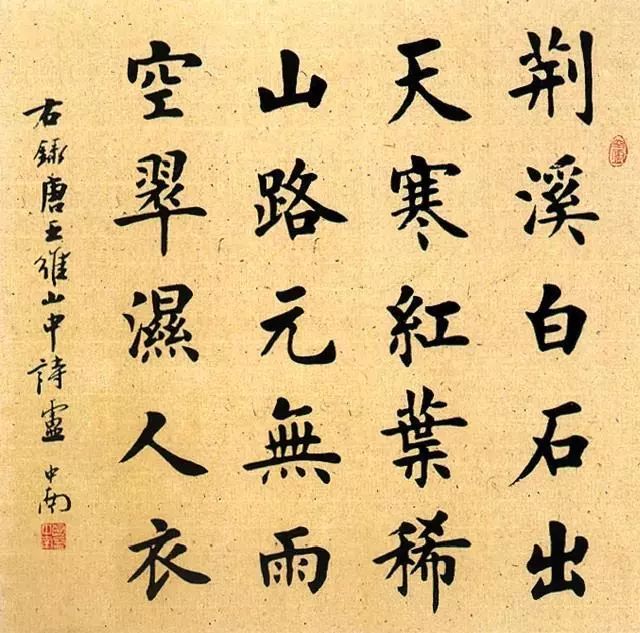 荆溪白石出
天寒紅葉稀
山路元無雨
空翠濕人衣
右録唐王維山中詩盧中南